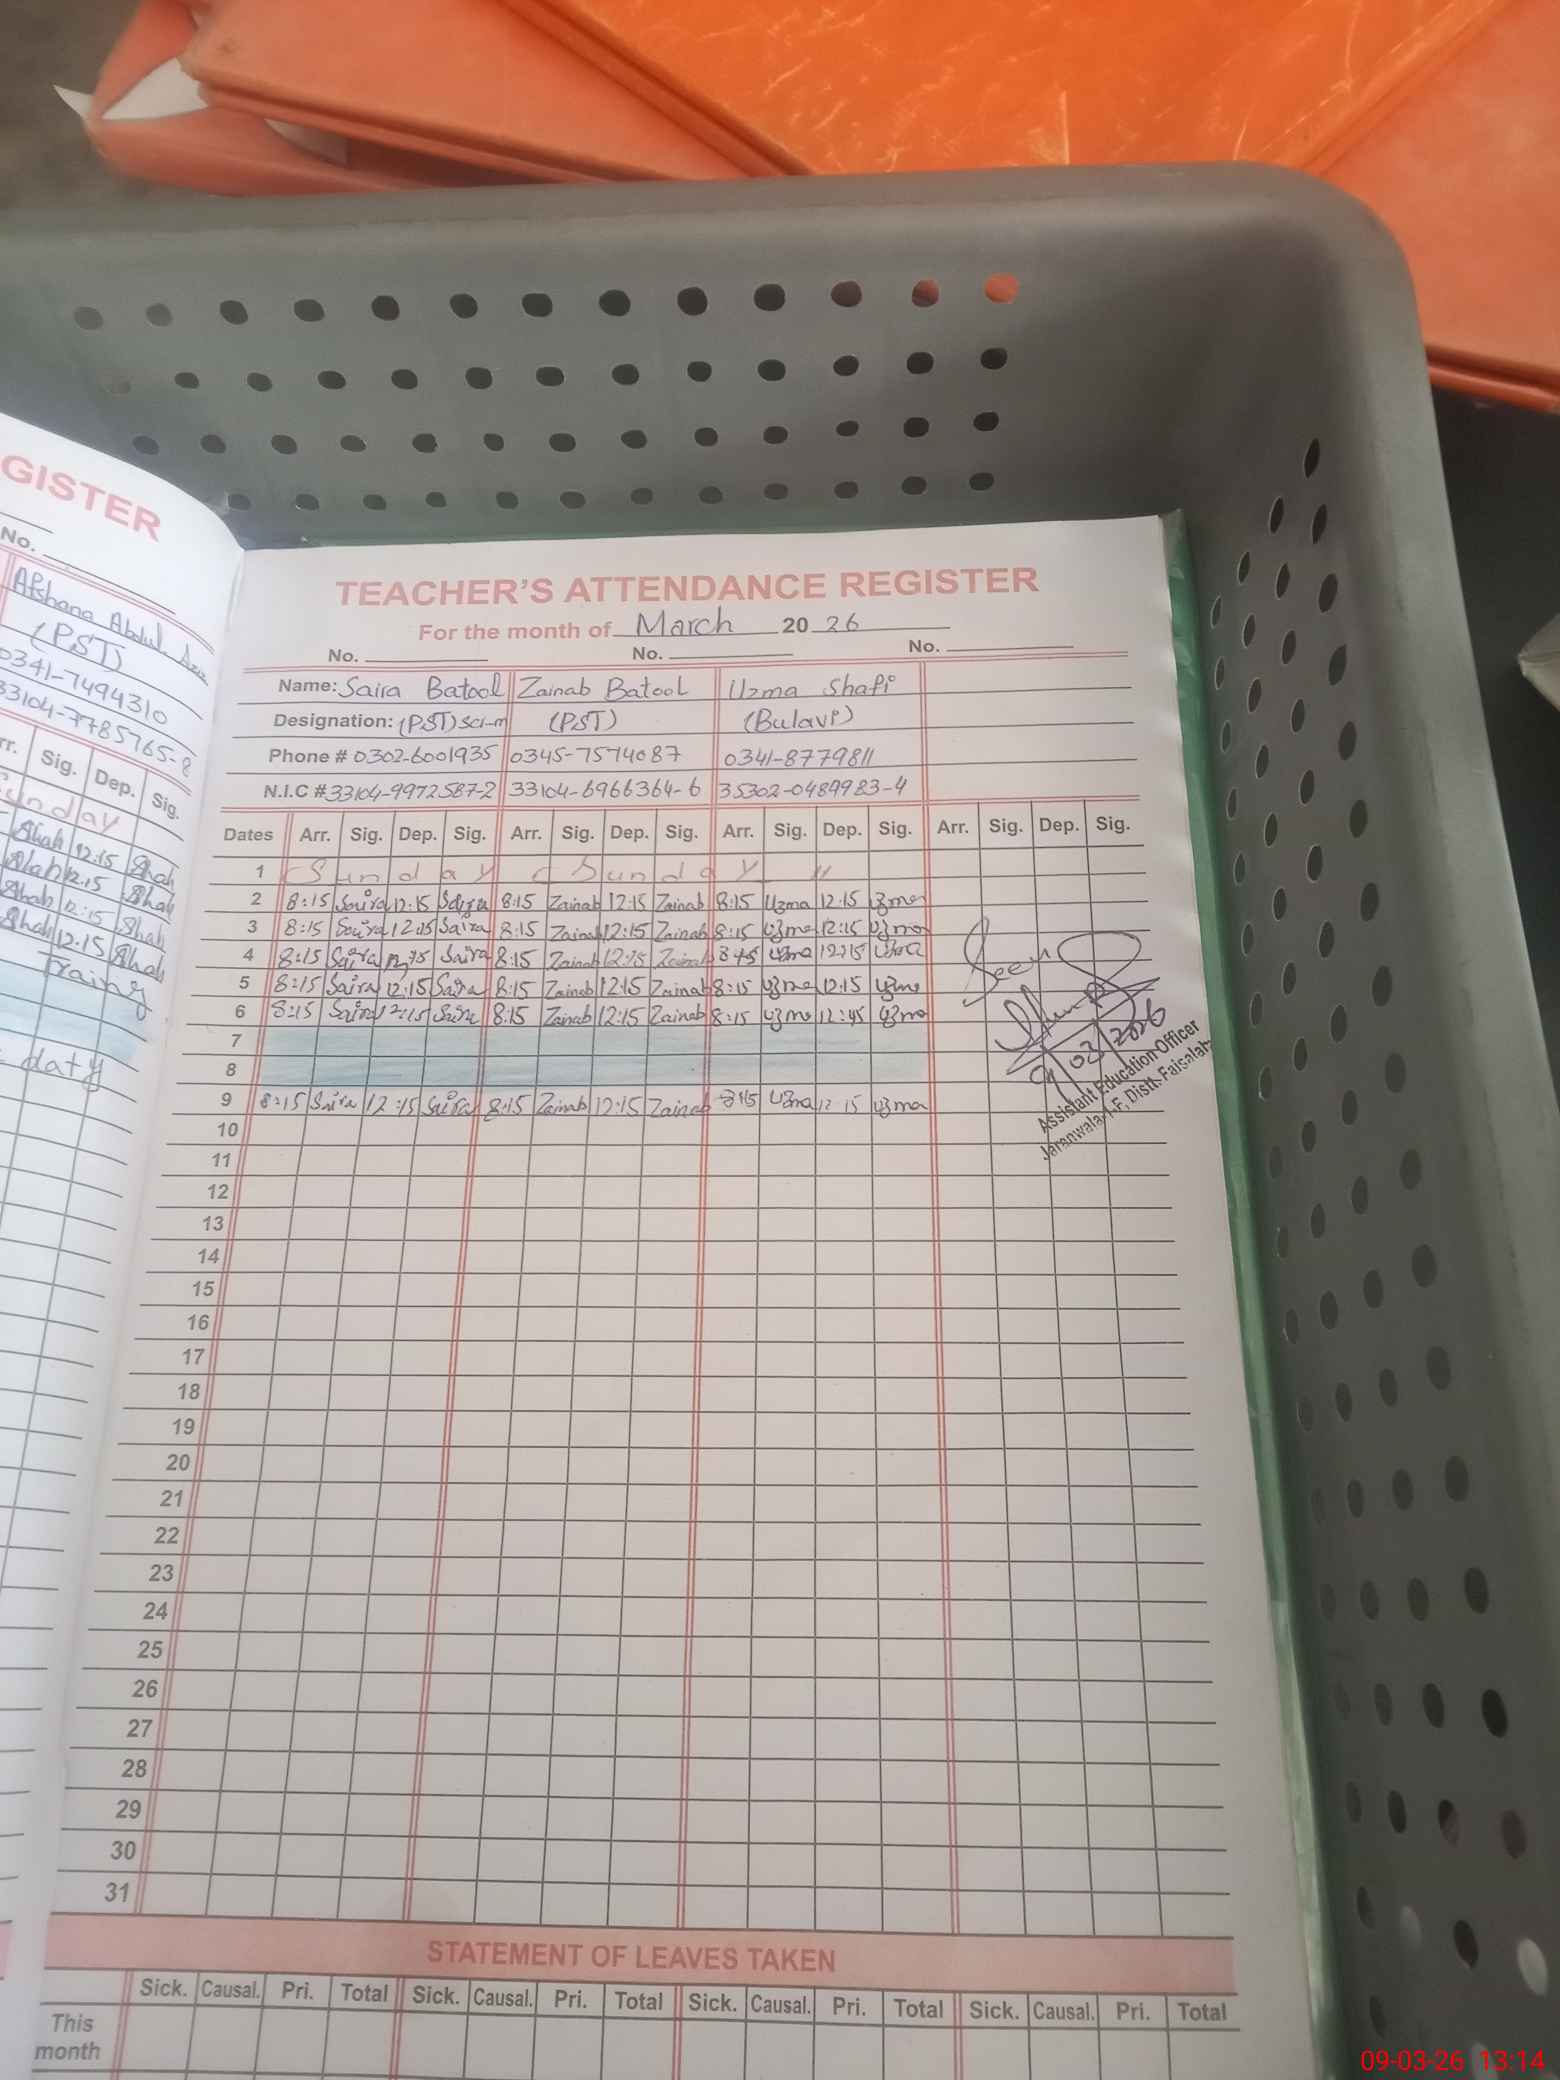 GISTER
No.
Afshana Abdul Aziz
(PST)
0341-7494310
33104-7785765-8
rr. Sig. Dep. Sig.
unday
Shah 12:15 Shah
Shah 12:15 Shah
Shah 12:15 Shah
Shah 12:15 Shah
Training
daty
TEACHER'S ATTENDANCE REGISTER
For the month of March 20 26
No. No. No.
Name: Saira Batool Zainab Batool Uzma Shafi
Designation: (PST) Sci-m (PST) (Bulavi)
Phone # 0302-6001935 0345-7574087 0341-8779811
N.I.C # 33104-9972587-2 33104-6966364-6 35302-0489983-4
Dates Arr. Sig. Dep. Sig. Arr. Sig. Dep. Sig. Arr. Sig. Dep. Sig. Arr. Sig. Dep. Sig.
1 Sunday Sunday "
2 8:15 Saira 12:15 Saira 8:15 Zainab 12:15 Zainab 8:15 Uzma 12:15 Uzma
3 8:15 Saira 12:15 Saira 8:15 Zainab 12:15 Zainab 8:15 Uzma 12:15 Uzma
4 8:15 Saira 12:15 Saira 8:15 Zainab 12:15 Zainab 8:15 Uzma 12:15 Uzma
5 8:15 Saira 12:15 Saira 8:15 Zainab 12:15 Zainab 8:15 Uzma 12:15 Uzma
6 8:15 Saira 12:15 Saira 8:15 Zainab 12:15 Zainab 8:15 Uzma 12:45 Uzma
7
8
9 8:15 Saira 12:15 Saira 8:15 Zainab 12:15 Zainab 8:15 Uzma 12 15 Uzma
Seen
9/03/2026
Assistant Education Officer
Jaranwala-I-F, Distt. Faisalab
10
11
12
13
14
15
16
17
18
19
20
21
22
23
24
25
26
27
28
29
30
31
STATEMENT OF LEAVES TAKEN
Sick. Causal. Pri. Total Sick. Causal. Pri. Total Sick. Causal. Pri. Total Sick. Causal. Pri. Total
This
month
09-03-26 13:14